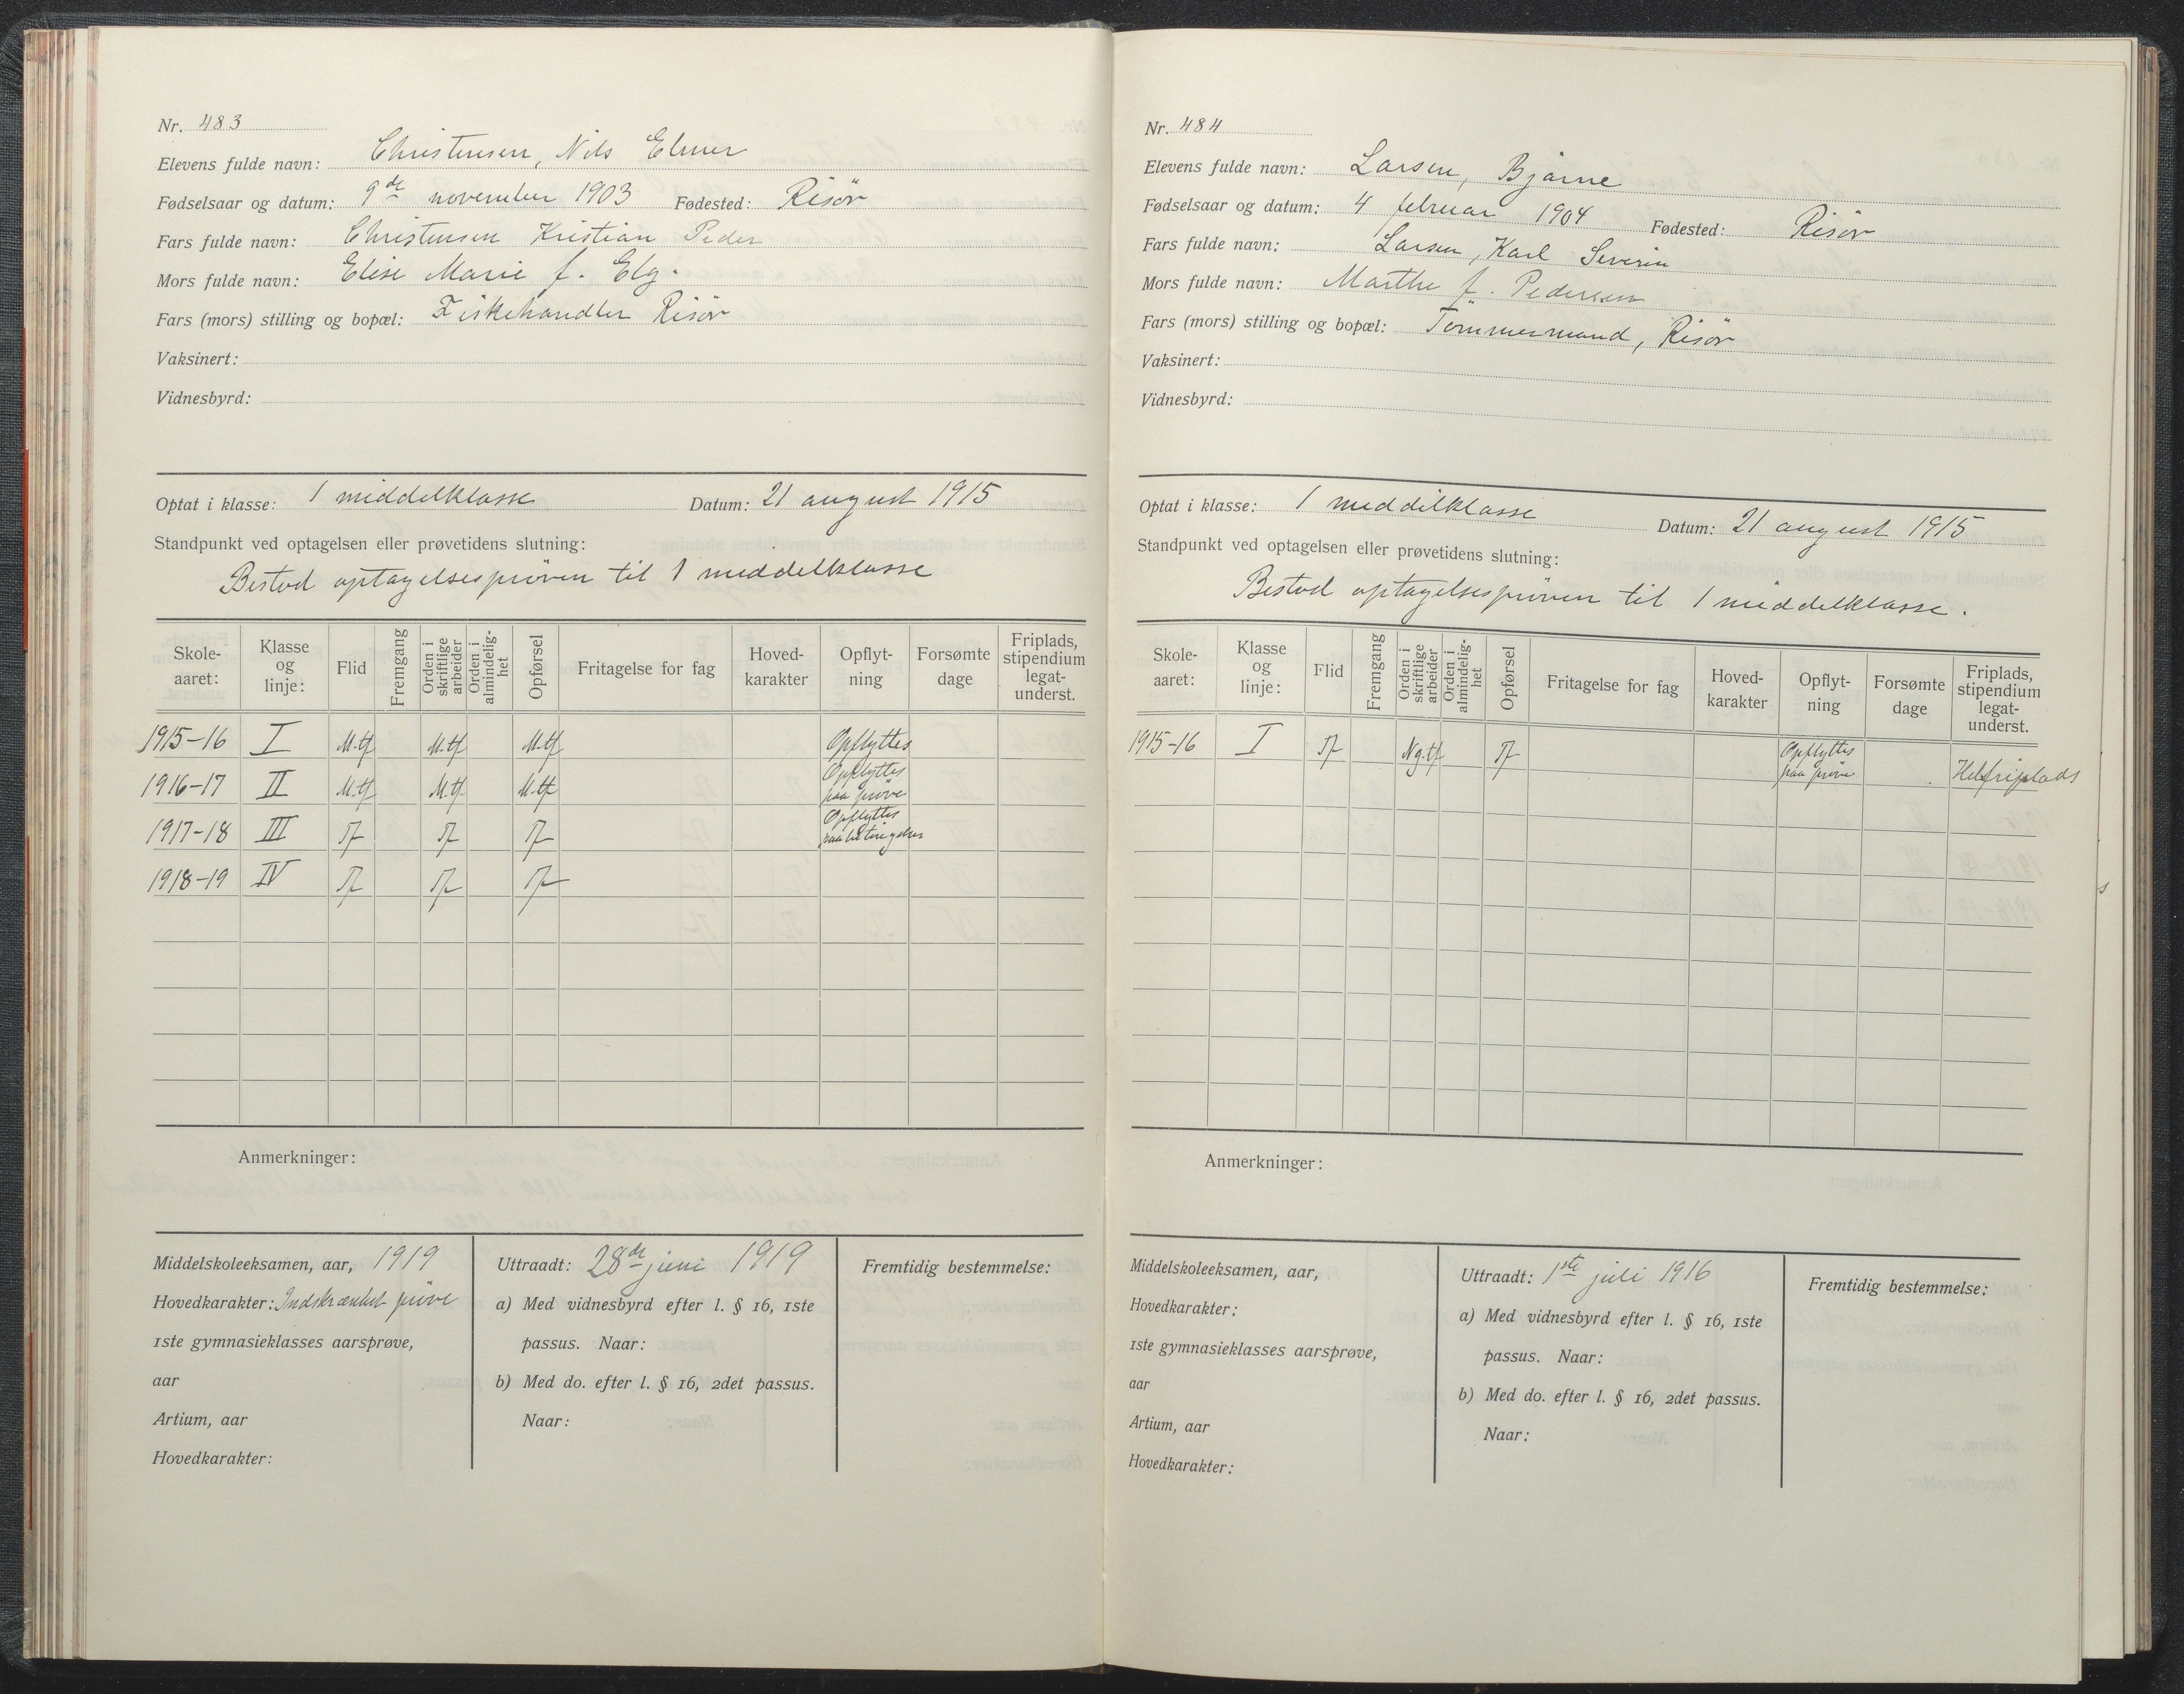 Nr. 483
Elevens fulde navn: Christensen, Nils Elmer
Fødselsaar og datum: 9de november 1903 Fødested: Risör
Fars fulde navn: Christensen Kristian Peder
Mors fulde navn: Elise Marie f. Elg.
Fars (mors) stilling og bopæl: Fiskehandler Risör
Vaksinert:
Vidnesbyrd:
Optat i klasse: 1 middelklasse Datum: 21 august 1915
Standpunkt ved optagelsen eller prøvetidens slutning:
Bestod optagelsespröven til 1 middelklasse
Skole-aaret: Klasse og linje: Flid Fremgang Orden i skriftlige arbeider Orden i almindelig-het Opførsel Fritagelse for fag Hoved-karakter Opflyt-ning Forsømte dage Friplads, stipendium legat-underst.
1915-16 I M.tf M.tf M.tf Opflyttes
1916-17 II M.tf M.tf M.tf Opflyttes paa pröve
1917-18 III Tf Tf Tf Opflyttes paa betingelser
1918-19 IV Tf Tf Tf
Anmerkninger:
Middelskoleeksamen, aar, 1919
Hovedkarakter: Indskrænket pröve
1ste gymnasieklasses aarsprøve,
aar
Artium, aar
Hovedkarakter:
Uttraadt: 28de juni 1919
a) Med vidnesbyrd efter l. § 16, 1ste
passus. Naar:
b) Med do. efter l. § 16, 2det passus.
Naar:
Fremtidig bestemmelse:
Nr. 484
Elevens fulde navn: Larsen, Bjarne
Fødselsaar og datum: 4 februar 1904 Fødested: Risör
Fars fulde navn: Larsen, Karl Severin
Mors fulde navn: Marthe f. Pedersen
Fars (mors) stilling og bopæl: Tömmermand, Risör
Vaksinert:
Vidnesbyrd:
Optat i klasse: 1 middelklasse Datum: 21 august 1915
Standpunkt ved optagelsen eller prøvetidens slutning:
Bestod optagelsespröven til 1 middelklasse.
Skole-aaret: Klasse og linje: Flid Fremgang Orden i skriftlige arbeider Orden i almindelig-het Opførsel Fritagelse for fag Hoved-karakter Opflyt-ning Forsømte dage Friplads, stipendium legat-underst.
1915-16 I Tf Ng.tf Tf Opflyttes paa pröve Helfriplads
Anmerkninger:
Middelskoleeksamen, aar,
Hovedkarakter:
1ste gymnasieklasses aarsprøve,
aar
Artium, aar
Hovedkarakter:
Uttraadt: 1ste juli 1916
a) Med vidnesbyrd efter l. § 16, 1ste
passus. Naar:
b) Med do. efter l. § 16, 2det passus.
Naar:
Fremtidig bestemmelse: